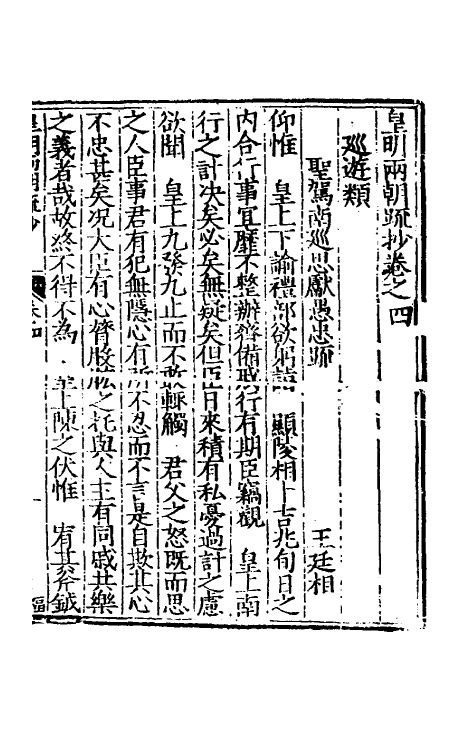 皇明兩朝疏抄卷之四
廵遊類
聖駕南廵思獻愚忠疏
王廷相
仰惟 皇上下諭禮部欲躬詣 顯陵相卜吉兆旬日之
内合行事宜靡不整辦齊備戒行有期臣竊觀 皇上南
行之計决矣必矣無疑矣但臣日來積有私憂過計之慮
欲聞 皇上九發九止而不敢輙觸 君父之怒既而思
之人臣事君有犯無隱心有所不忍而不言是自欺其心
不忠甚矣况大臣有心膂股肱之托與人主有同戚共樂
之義者哉故終不得不為 皇上陳之伏惟 宥其斧鉞
皇明兩朝疏抄